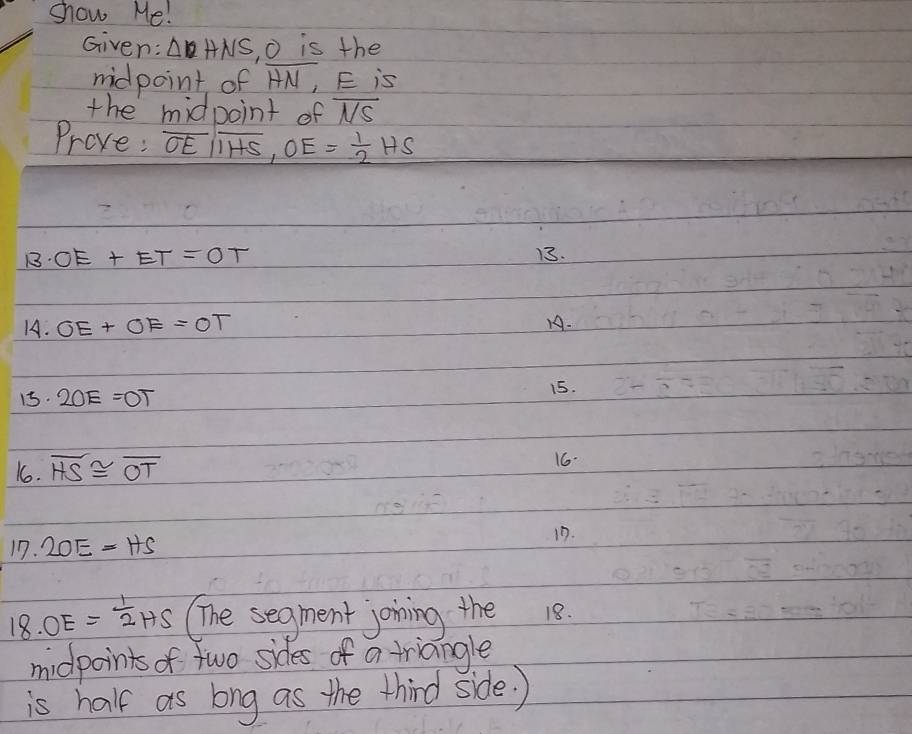 Show Me!
Given: △HNS, O is the
midpoint of HN, E is
the midpoint of NS
Prove: OE || HS, OE = 1/2 HS
13. OE + ET = OT 13.
14. OE + OE = OT 14.
15. 2OE = OT 15.
16. HS ≅ OT 16.
17. 2OE = HS 17.
18. OE = 1/2 HS (The segment joining the 18.
midpoints of two sides of a triangle
is half as long as the third side.)